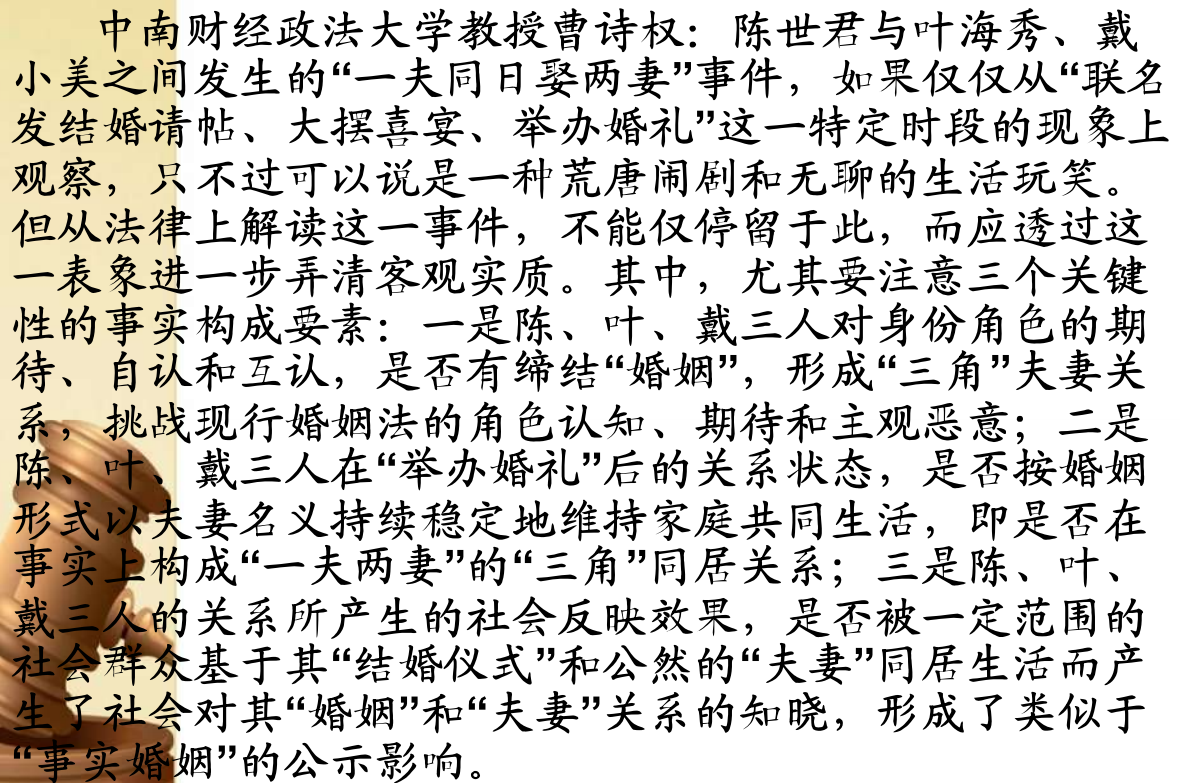 中南财经政法大学教授曹诗权：陈世君与叶海秀、戴
小美之间发生的“一夫同日娶两妻”事件，如果仅仅从“联名
发结婚请帖、大摆喜宴、举办婚礼”这一特定时段的现象上
观察，只不过可以说是一种荒唐闹剧和无聊的生活玩笑。
但从法律上解读这一事件，不能仅停留于此，而应透过这
一表象进一步弄清客观实质。其中，尤其要注意三个关键
性的事实构成要素：一是陈、叶、戴三人对身份角色的期
待、自认和互认，是否有缔结“婚姻”，形成“三角”夫妻关
系，挑战现行婚姻法的角色认知、期待和主观恶意；二是
陈、叶、戴三人在“举办婚礼”后的关系状态，是否按婚姻
形式以夫妻名义持续稳定地维持家庭共同生活，即是否在
事实上构成“一夫两妻”的“三角”同居关系；三是陈、叶、
戴三人的关系所产生的社会反映效果，是否被一定范围的
社会群众基于其“结婚仪式”和公然的“夫妻”同居生活而产
生了社会对其“婚姻”和“夫妻”关系的知晓，形成了类似于
“事实婚姻”的公示影响。